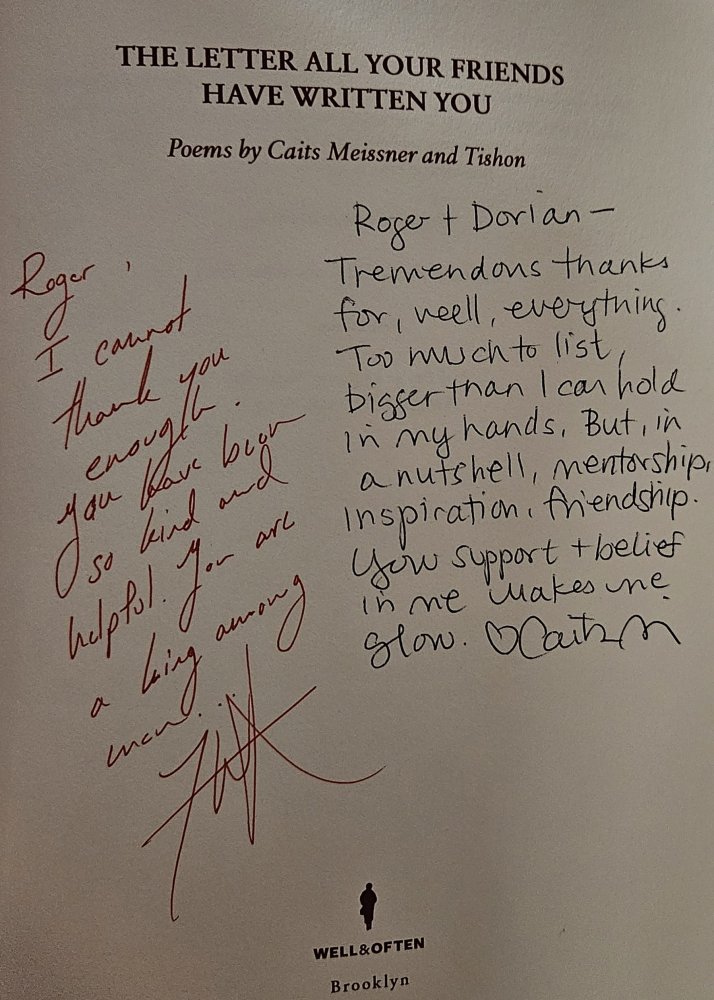 THE LETTER ALL YOUR FRIENDS
HAVE WRITTEN YOU
Poems by Caits Meissner and Tishon
Roger,
I cannot
thank you
enough.
you have been
so kind and
helpful. You are
a king among
men...
Roger + Dorian —
Tremendous thanks
for, well, everything.
Too much to list,
bigger than I can hold
in my hands. But, in
a nutshell, mentorship,
inspiration, friendship.
Your support + belief
in me makes me
glow. ♡ Caits M
WELL&OFTEN
Brooklyn